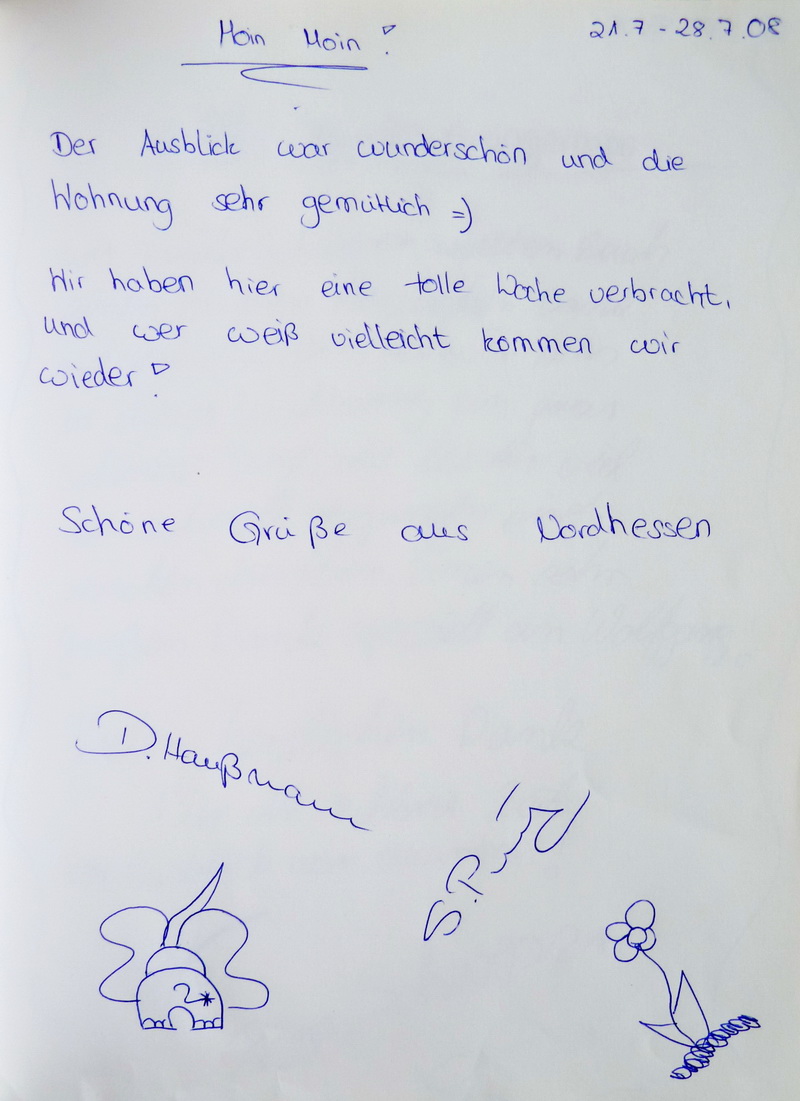 Moin Moin!
21.7 - 28.7.08
Der Ausblick war wunderschön und die
Wohnung sehr gemütlich =)
Wir haben hier eine tolle Woche verbracht,
und wer weiß vielleicht kommen wir
wieder!
Schöne Grüße aus Nordhessen
D. Haußmann
S.P.